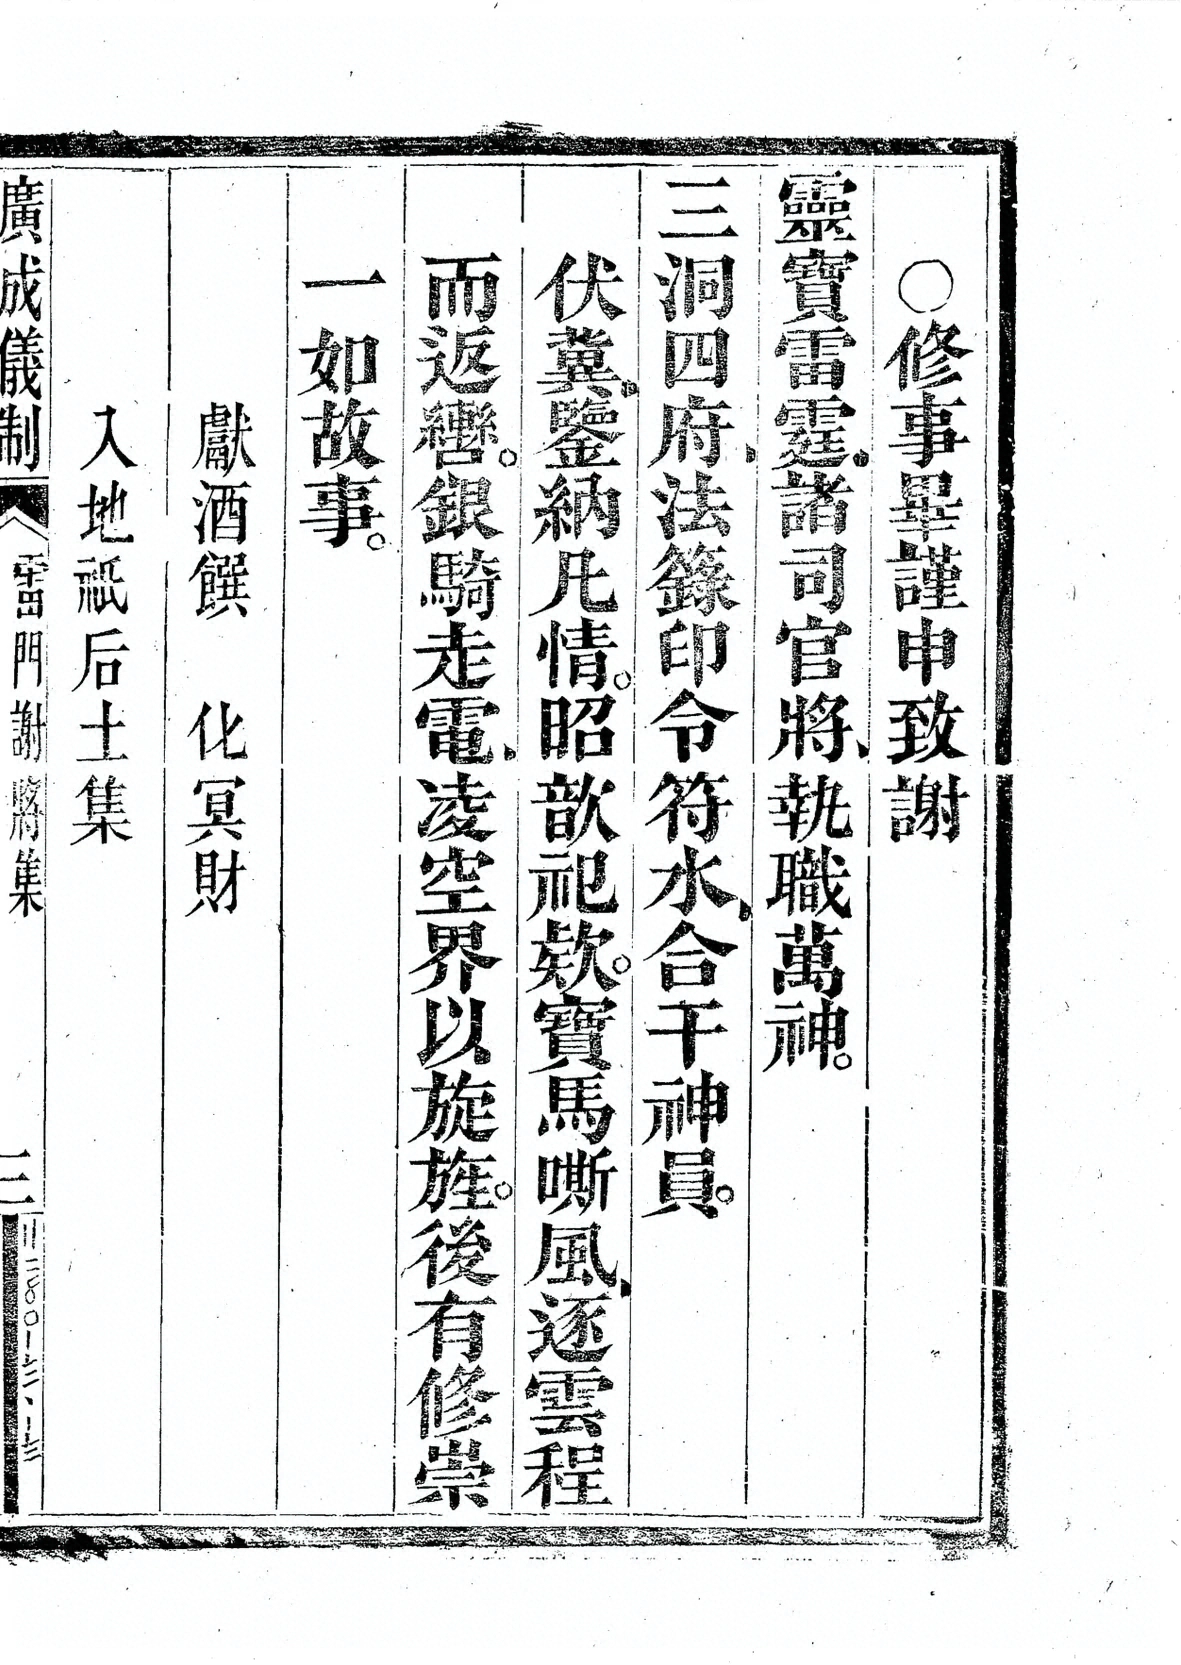 〇修事畢謹申致謝
靈寶雷霆、諸司官將、執職萬神。
三洞四府、法籙印令符水、合干神員。
伏冀、鑒納凡情。昭歆祀欵。寶馬嘶風、逐雲程
而返轡。銀騎走電、凌空界以旋旌。後有修崇
一如故事。
獻酒饌　化冥財
入地祇后土集
廣成儀制　雷門謝將集　三